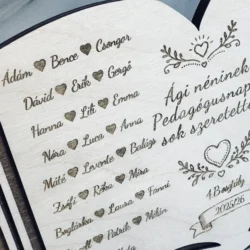 Ádám Bence Csongor
Dávid Erik Gergő
Hanna Lili Emma
Nóra Luca Anna
Máté Levente Balázs
Zsófi Réka Míra
Boglárka Laura Fanni
Patrik Milán
Ági néninek
Pedagógusnap
sok szeretette
4.Boszály
2025/26